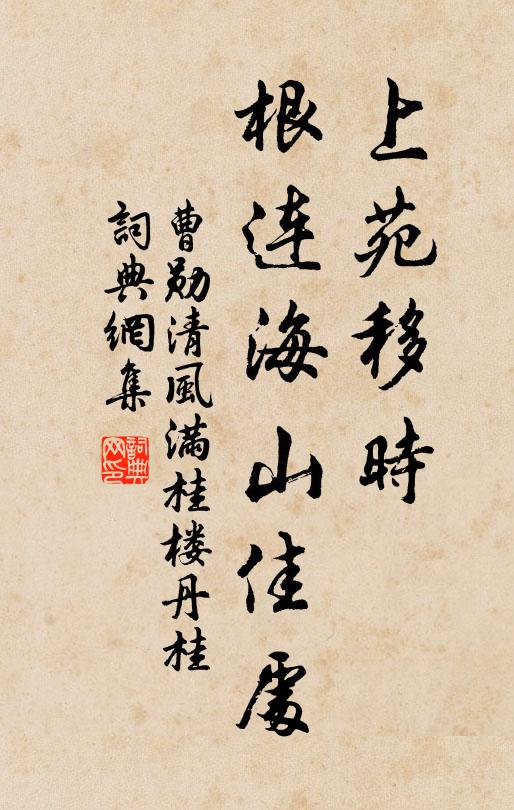 上苑移時
根連海山佳處
曹勛清風滿桂楼丹桂
詞典網集
詞典网印